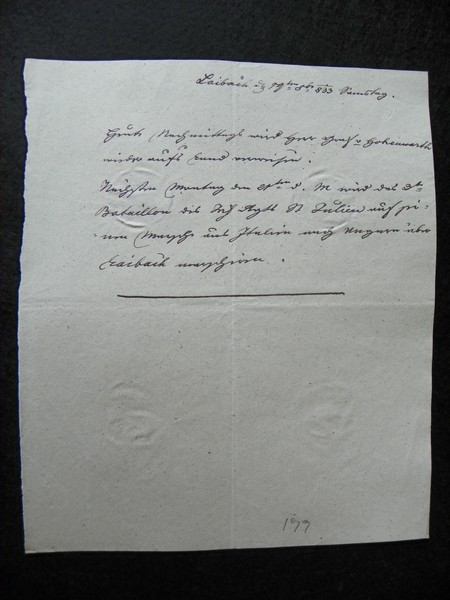 Laibach den 19ten 8br 833 Samstag.
Heute Nachmittags wird Herr Graf v Hohenwarth
wieder aufs Land verreisen.
Nächsten Montag den 21ten d. M wird das 3te
Bataillon des Inf Rgts St Julien auf sei-
nem Marsche aus Italien nach Ungarn über
Laibach marschiren.
199